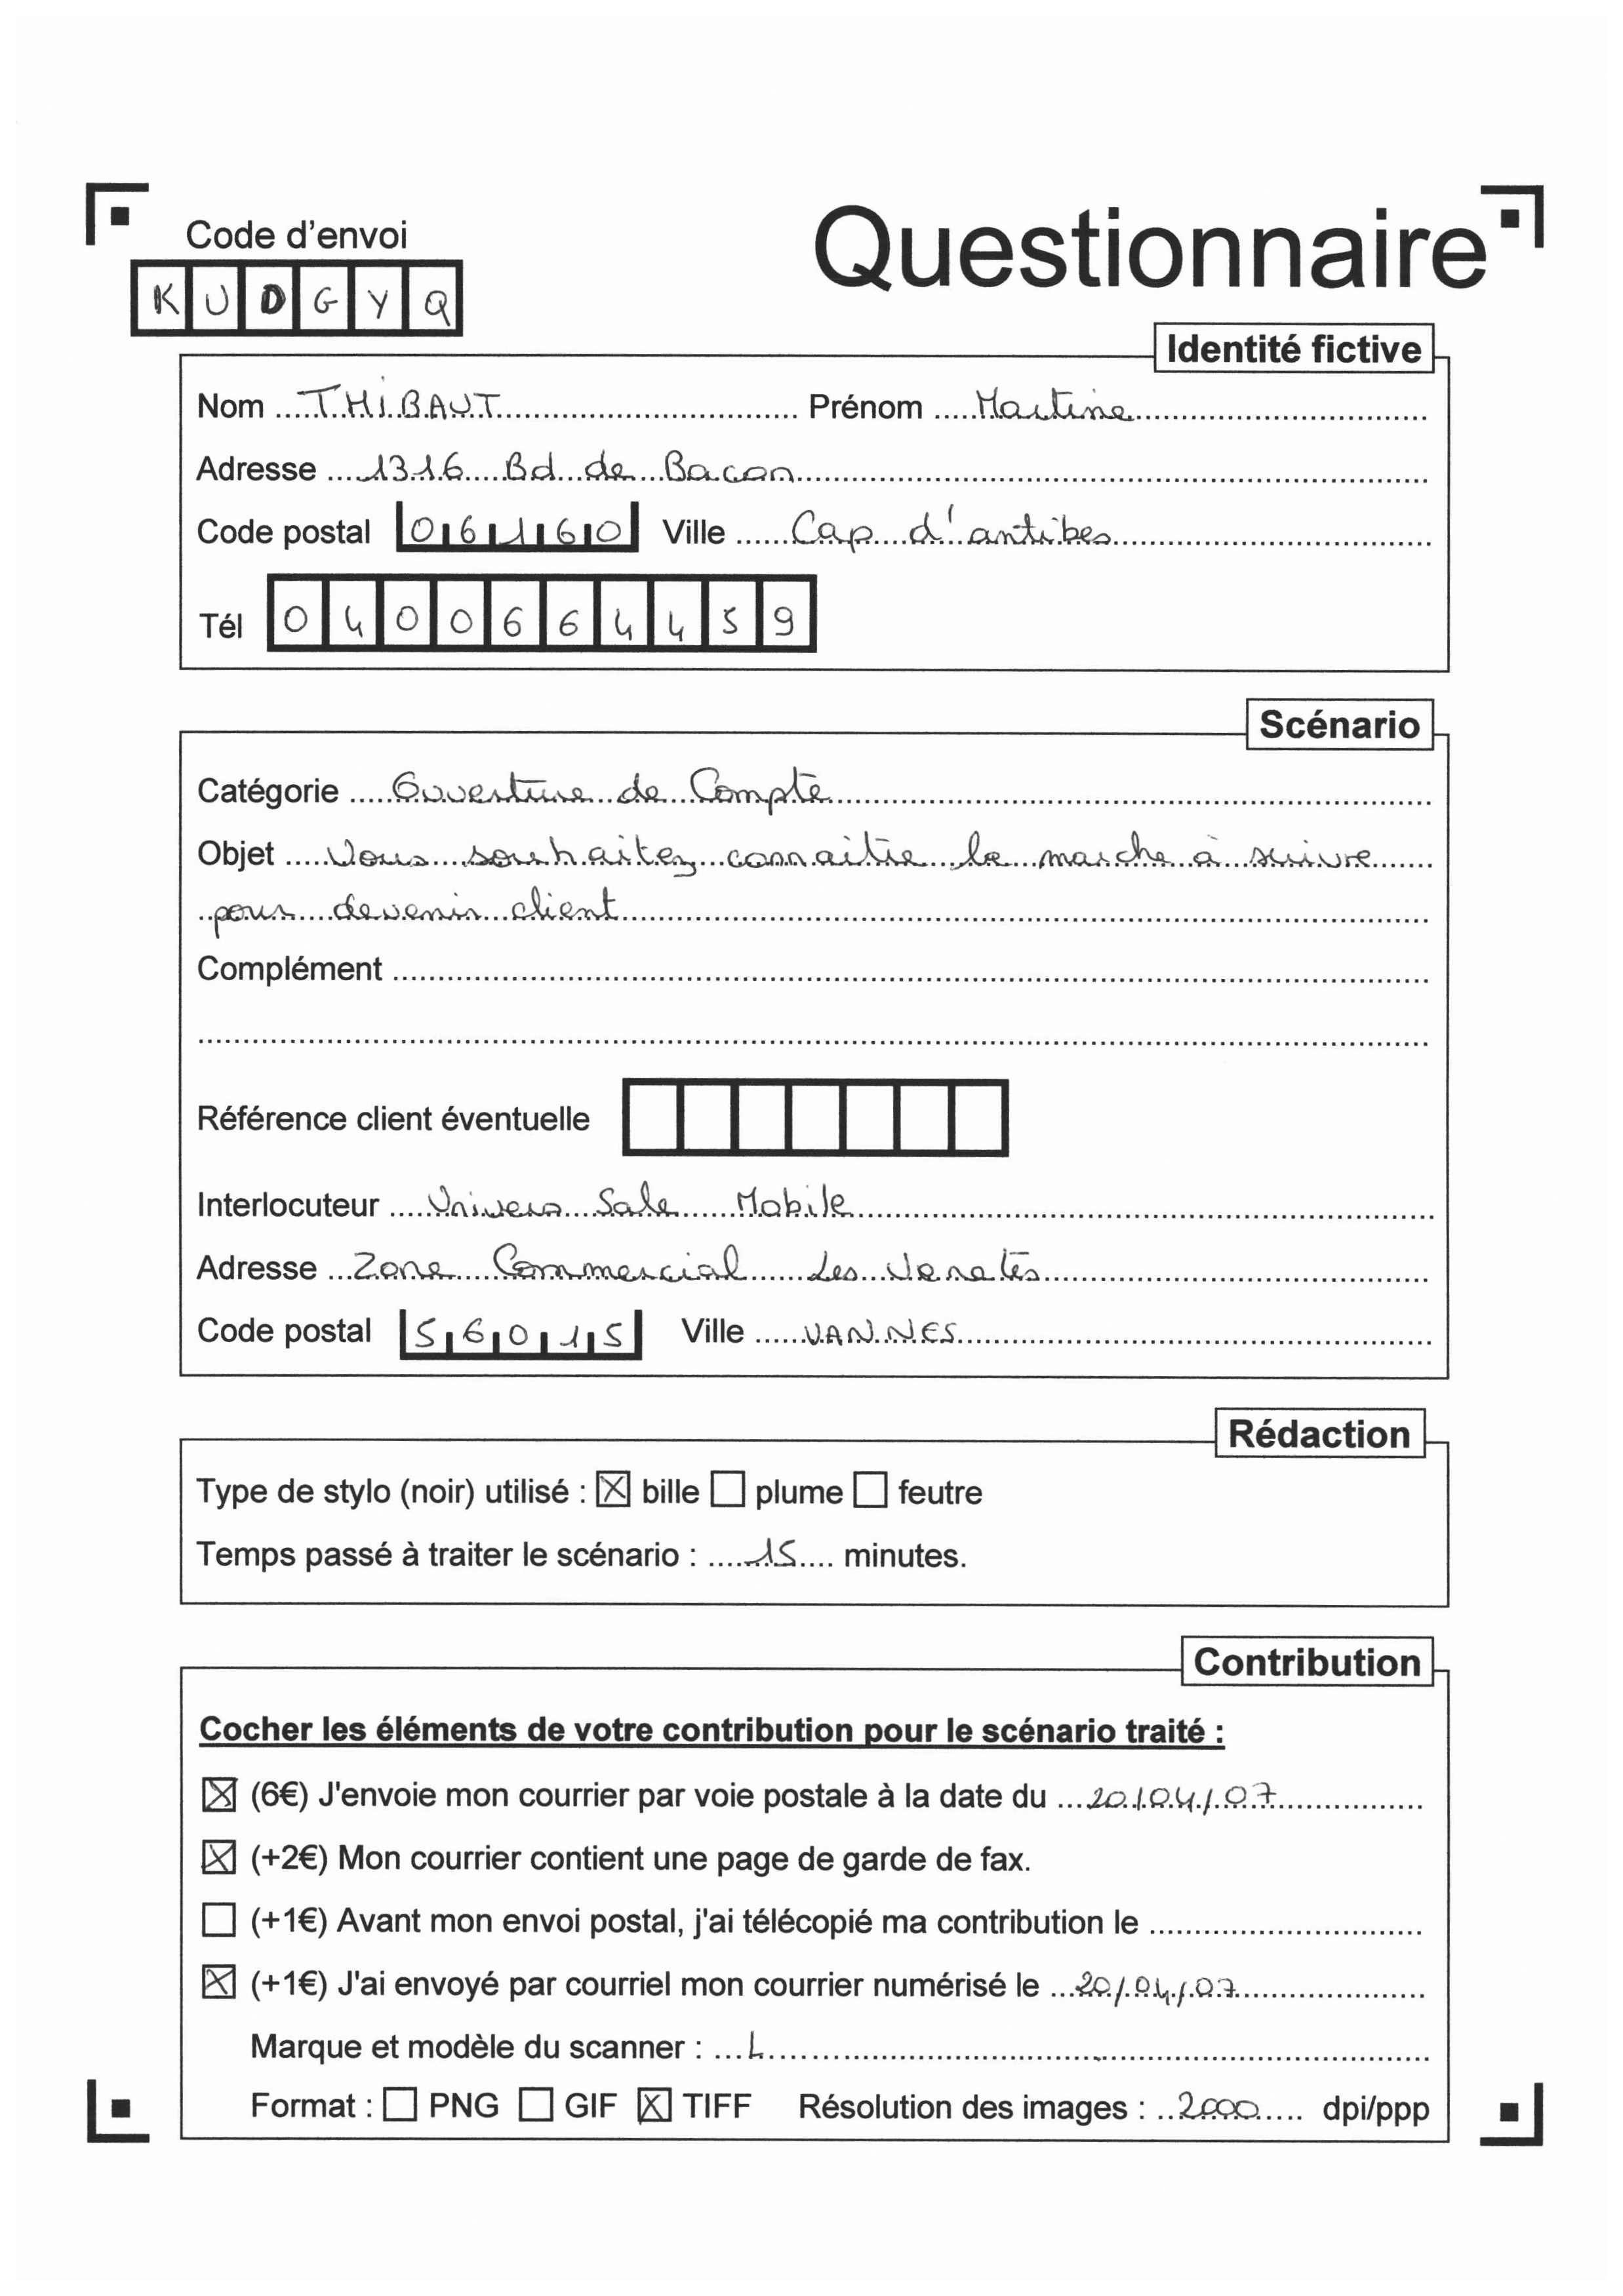 Questionnaire
Code d'envoi
KUDGYQ
Identité fictive
Nom THIBAUT Prénom Martine
Adresse 1316 Bd de Bacon
Code postal 06160 Ville Cap d'antibes
Tél 0400664459
Scénario
Catégorie Ouverture de Compte
Objet Vous souhaitez connaitre la marche à suivre
pour devenir client
Complément
Référence client éventuelle
Interlocuteur Univers Sale Mobile
Adresse Zone Commercial Les Venetes
Code postal 56015 Ville VANNES
Rédaction
Type de stylo (noir) utilisé : ☒ bille ☐ plume ☐ feutre
Temps passé à traiter le scénario : 15 minutes.
Contribution
Cocher les éléments de votre contribution pour le scénario traité :
☒ (6€) J'envoie mon courrier par voie postale à la date du 20/04/07
☒ (+2€) Mon courrier contient une page de garde de fax.
☐ (+1€) Avant mon envoi postal, j'ai télécopié ma contribution le
☒ (+1€) J'ai envoyé par courriel mon courrier numérisé le 20/04/07
Marque et modèle du scanner : L
Format : ☐ PNG ☐ GIF ☒ TIFF Résolution des images : 2000 dpi/ppp